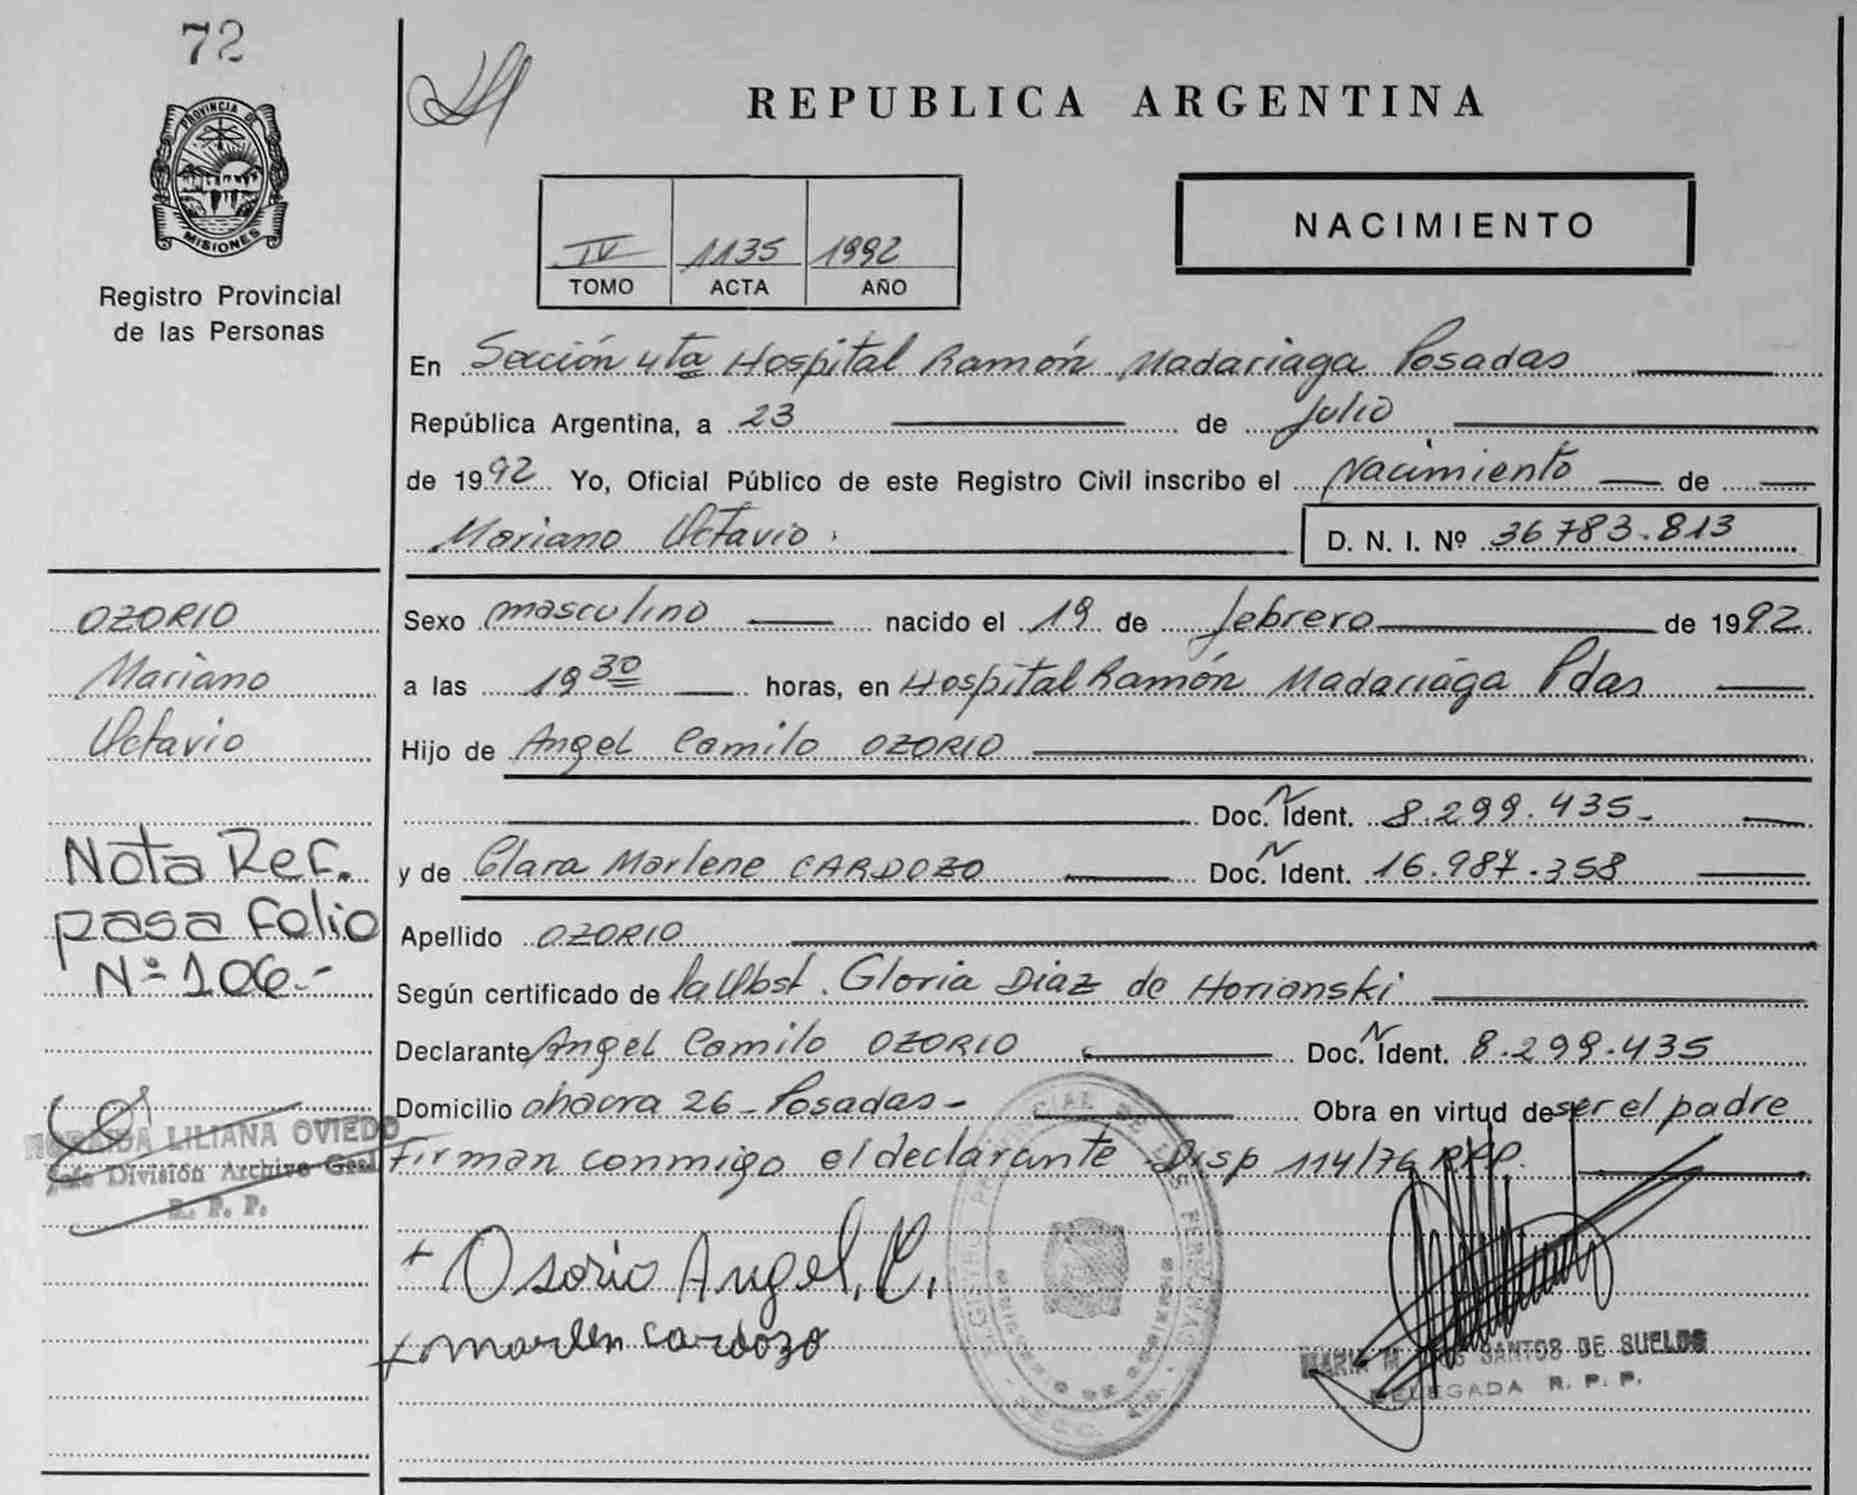 72
PROVINCIA DE
MISIONES
Registro Provincial
de las Personas
REPUBLICA ARGENTINA
IV 1135 1992
TOMO ACTA AÑO
NACIMIENTO
En Sección 4ta Hospital Ramón Madariaga Posadas
República Argentina, a 23 de Julio
de 1992 Yo, Oficial Público de este Registro Civil inscribo el Nacimiento de
Mariano Octavio. D. N. I. Nº 36783.813
OZORIO
Mariano
Octavio
Nota Ref.
pasa folio
Nº 106.-
LILIANA OVIEDO
Jefe División Archivo Gral
R. P. P.
Sexo masculino nacido el 19 de febrero de 1992
a las 19 30 horas, en Hospital Ramón Madariaga Pdas
Hijo de Angel Camilo OZORIO
Doc. N Ident. 8.299.435-
y de Clara Marlene CARDOZO Doc. N Ident. 16.987.358
Apellido OZORIO
Según certificado de la Obst. Gloria Diaz de Horianski
Declarante Angel Camilo OZORIO Doc. N Ident. 8.299.435
Domicilio chacra 26 - Posadas - Obra en virtud de ser el padre
Firman conmigo el declarante Disp 114/76 RPP.
+ Osorio Angel. C.
+ marlen cardozo
REGISTRO PROVINCIAL DE LAS PERSONAS
MARIA M DOS SANTOS DE SUELOS
DELEGADA R. P. P.